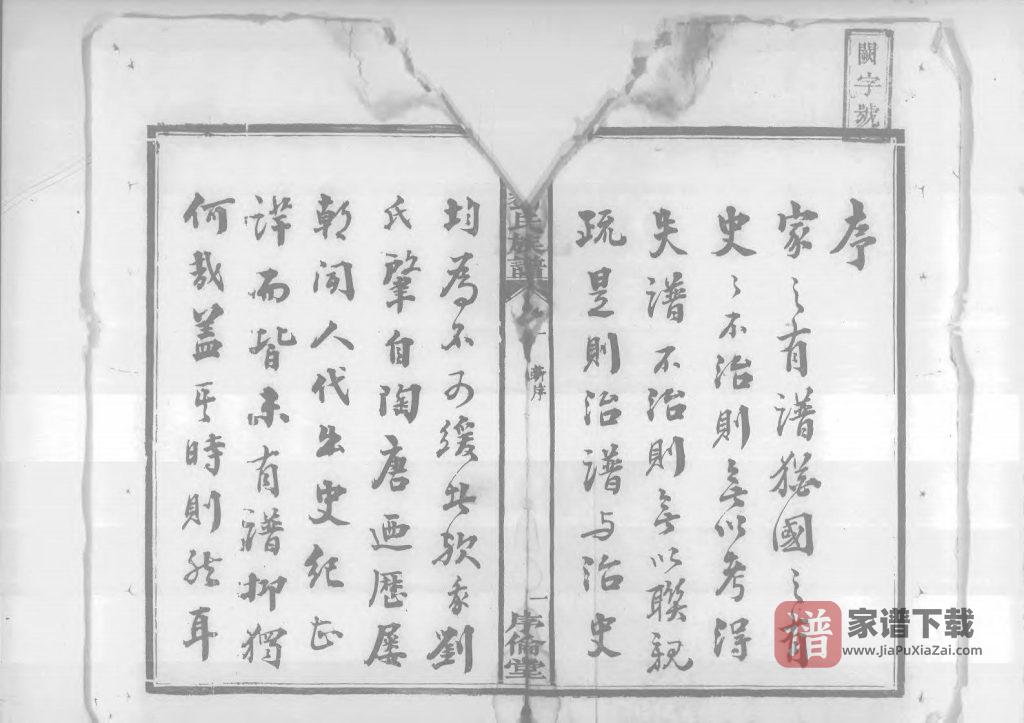 闕字號
序
家之有譜猶國之有
史〻不治則無以考得
失譜不治則無以聯親
疏是則治譜与治史
氏族譜
一
新序
一
序倫堂
均為不可緩者歟我劉
氏肇自陶唐迺歷屢
朝聞人代出史紀
詳而皆未有譜抑獨
何哉蓋其時則然耳
譜
家谱下载
www.JiaPuXiaZai.com